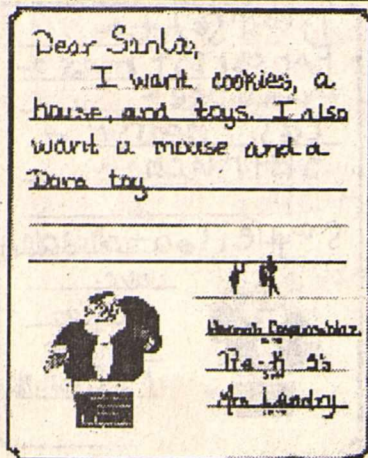 Dear Santa,
I want cookies, a
house, and toys. I also
want a mouse and a
Dora toy
Pre-K
Mrs. Landry